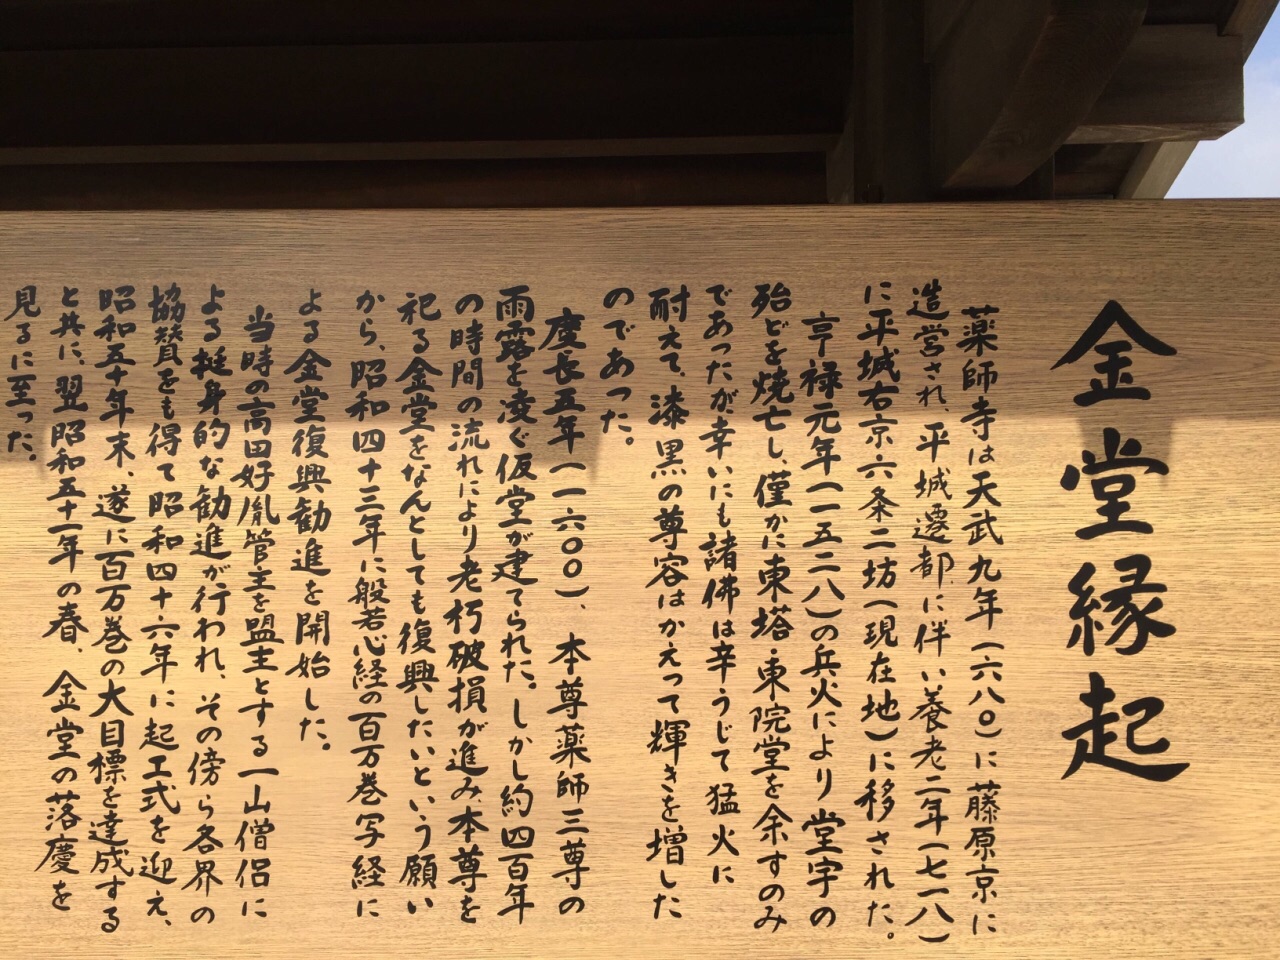 金堂縁起
薬師寺は天武九年(六八〇)に藤原京に
造営され、平城遷都に伴い養老二年(七一八)
に平城右京六条二坊(現在地)に移された。
亨禄元年(一五二八)の兵火により堂宇の
殆どを焼亡し、僅かに東塔・東院堂を余すのみ
であったが、幸いにも諸佛は辛うじて猛火に
耐えて、漆黒の尊容はかえって輝きを増した
のであった。
慶長五年(一六〇〇)、本尊薬師三尊の
雨露を凌ぐ仮堂が建てられた。しかし約四百年
の時間の流れにより老朽破損が進み、本尊を
祀る金堂をなんとしても復興したいという願い
から、昭和四十三年に般若心経の百万巻写経に
よる金堂復興勧進を開始した。
当時の高田好胤管主を盟主とする一山僧侶に
よる挺身的な勧進が行われ、その傍ら各界の
協賛をも得て昭和四十六年に起工式を迎え、
昭和五十年末、遂に百万巻の大目標を達成する
と共に、翌昭和五十一年の春、金堂の落慶を
見るに至った。